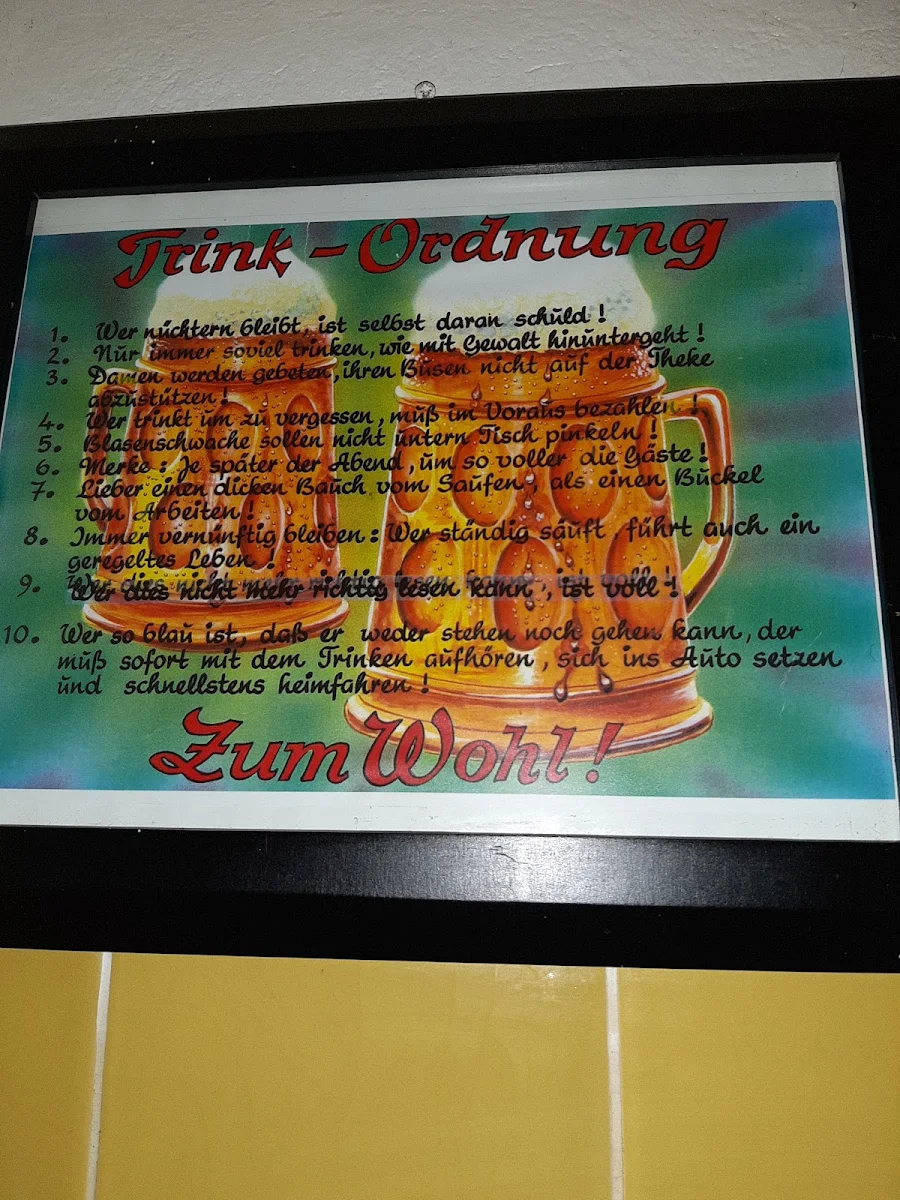 Trink-Ordnung
1. Wer nüchtern bleibt, ist selbst daran schuld!
2. Nur immer soviel trinken, wie mit Gewalt hinuntergeht!
3. Damen werden gebeten, ihren Busen nicht auf der Theke
abzustützen!
4. Wer trinkt um zu vergessen, muß im Voraus bezahlen!
5. Blasenschwache sollen nicht untern Tisch pinkeln!
6. Merke: Je später der Abend, um so voller die Gäste!
7. Lieber einen dicken Bauch vom Saufen, als einen Buckel
vom Arbeiten!
8. Immer vernünftig bleiben: Wer ständig säuft führt auch ein
geregeltes Leben!
9. Wer dies nicht mehr richtig lesen kann, ist voll!
10. Wer so blau ist, daß er weder stehen noch gehen kann, der
muß sofort mit dem Trinken aufhören, sich ins Auto setzen
und schnellstens heimfahren!
Zum Wohl!